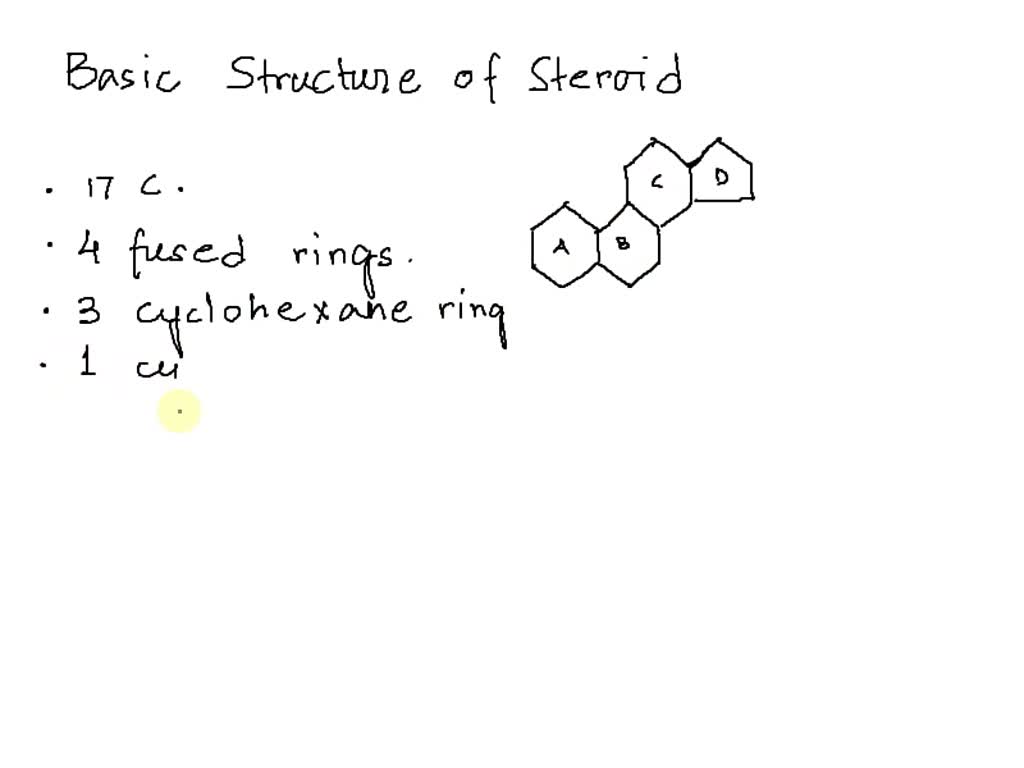 Basic Structure of Steroid
· 17 C.
· 4 fused rings.
· 3 cyclohexane ring
· 1 cy
C D
A B